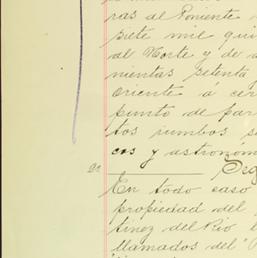 ras al Poniente
siete mil qui
al Norte y de a
mientas setenta
oriente á cer
punto de par
tos rumbos s
cos y astronóm
2a Seg
En todo caso
propiedad del
tinez del Rio l
llamados del "